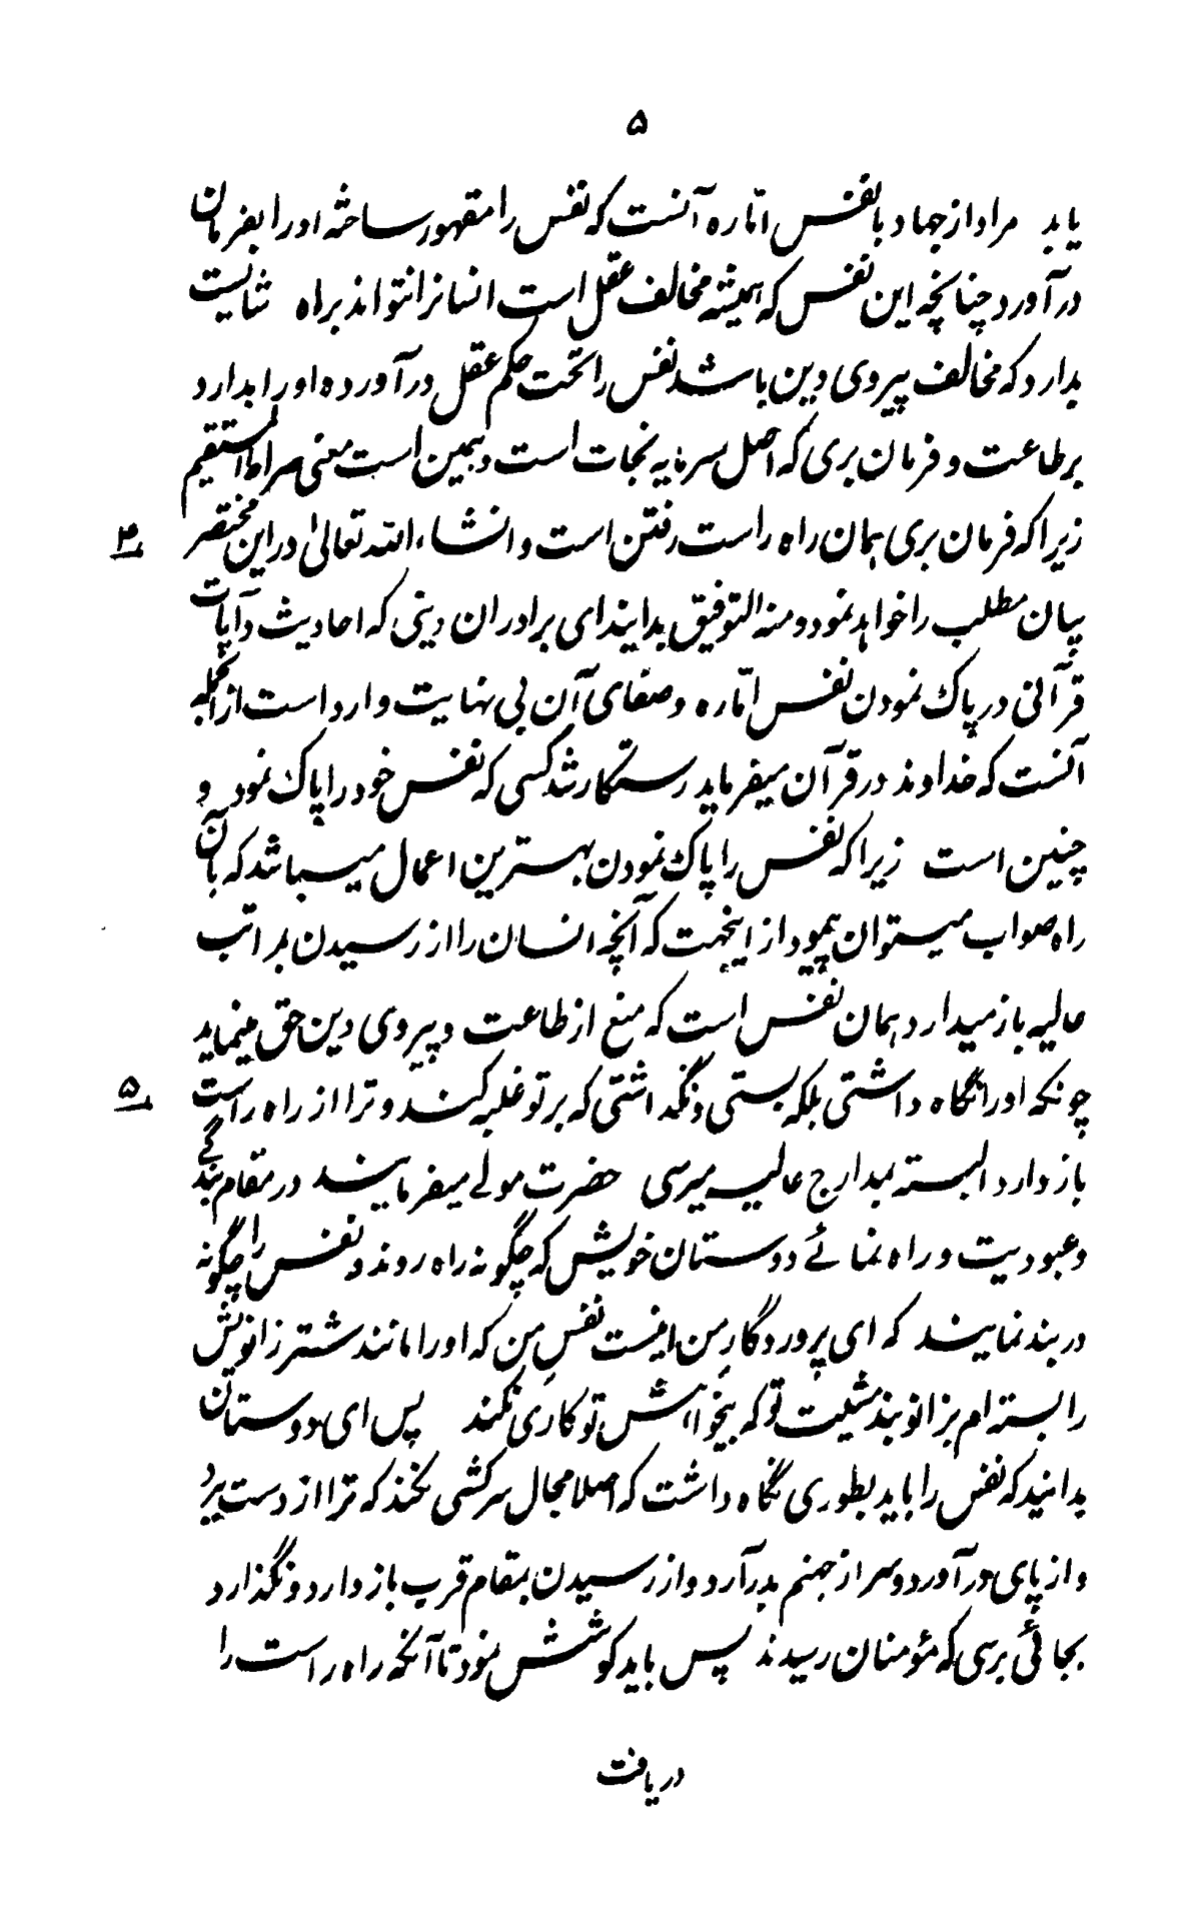 ۵
یابد مراد از جهاد با نفس امّاره آنست که نفس را مقهور ساخته او را بفرمان
در آورد چنانچه این نفس که همیشه مخالف عقل است انسانرا نتواند براه شایست
بدارد که مخالف پیروی دین باشد نفس را تحت حکم عقل در آورده او را بدارد
بر طاعت و فرمان بری که اصل سرمایه نجات است و همین است معنی صراط المستقیم
زیرا که فرمان بری همان راه راست رفتن است و انشاء الله تعالیٰ در این مختصر
۴
بیان مطلب را خواهد نمود و منه التوفیق بدانید ای برادران دینی که احادیث و آیات
قرآنی در پاک نمودن نفس امّاره و صفای آن بی نهایت وارد است از آنجمله
آنست که خداوند در قرآن میفرماید رستگار شد کسی که نفس خود را پاک نمود و
چنین است زیرا که نفس را پاک نمودن بهترین اعمال میباشد که بآن
راه صواب میتوان پیمود از اینجهت که آنچه انسان را از رسیدن بمراتب
عالیه باز میدارد همان نفس است که منع از طاعت و پیروی دین حق مینماید
چونکه او را نگاه داشتی بلکه بستی و نگذاشتی که بر تو غلبه کند و ترا از راه راست
۵
باز دارد البسته بمدارج عالیه میرسی حضرت مولی میفرمایند در مقام بندگی
و عبودیت و راه نمائے دوستان خویش که چگونه راه روند و نفس را چگونه
در بند نمایند که ای پروردگارِ من اینست نفسِ من که او را مانند شتر زانویش
را بسته ام بزانوبند مشیت تو که بیخواهش تو کاری نکند پس ای دوستان
بدانید که نفس را باید بطوری نگاه داشت که اصلا مجال سرکشی نکند که ترا از دست برد
و از پای در آورد و سر از جهنم بدر آرد و از رسیدن بمقام قرب باز دارد و نگذارد
بجائی برسی که مؤمنان رسیدند پس باید کوشش نمود تا آنکه راه راست را
دریافت